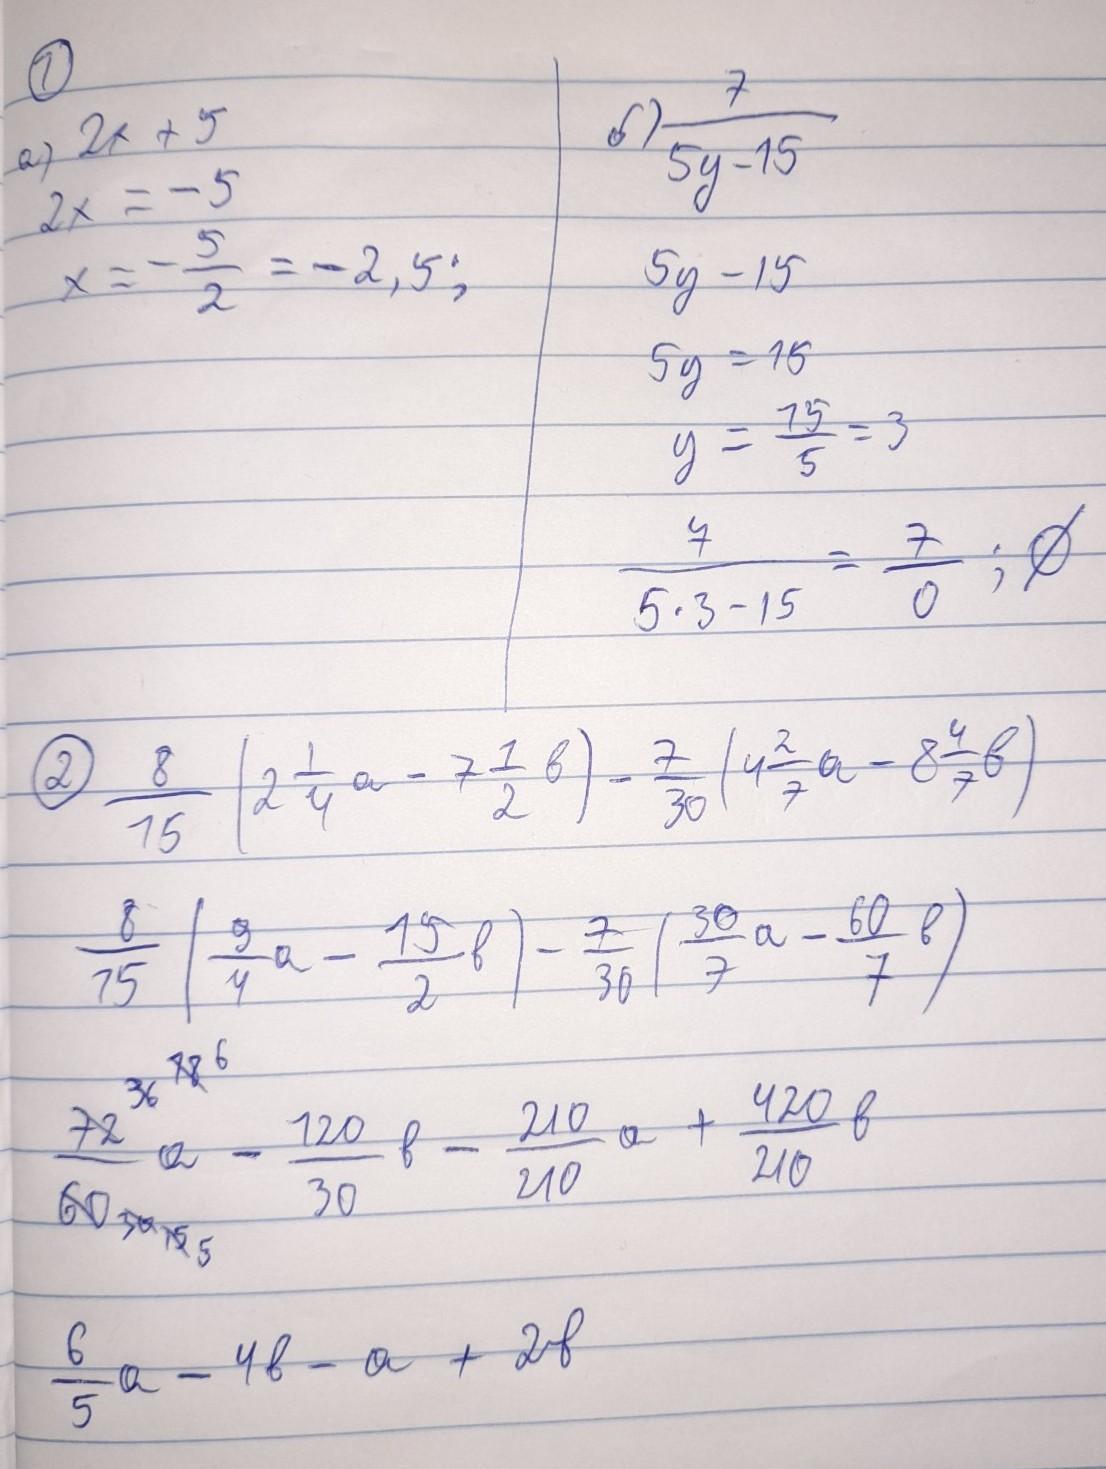 ①
а) 2x + 5
2x = -5
x = -5/2 = -2,5;
б) 7/(5y-15)
5y - 15
5y = 15
y = 15/5 = 3
7/(5·3-15) = 7/0 ; ∅
② 8/15 (2 1/4 a - 7 1/2 в) - 7/30 (4 2/7 a - 8 4/7 в)
8/15 (9/4 a - 15/2 в) - 7/30 (30/7 a - 60/7 в)
36 18 6
72/60 a - 120/30 в - 210/210 a + 420/210 в
30 15 5
6/5 a - 4в - a + 2в